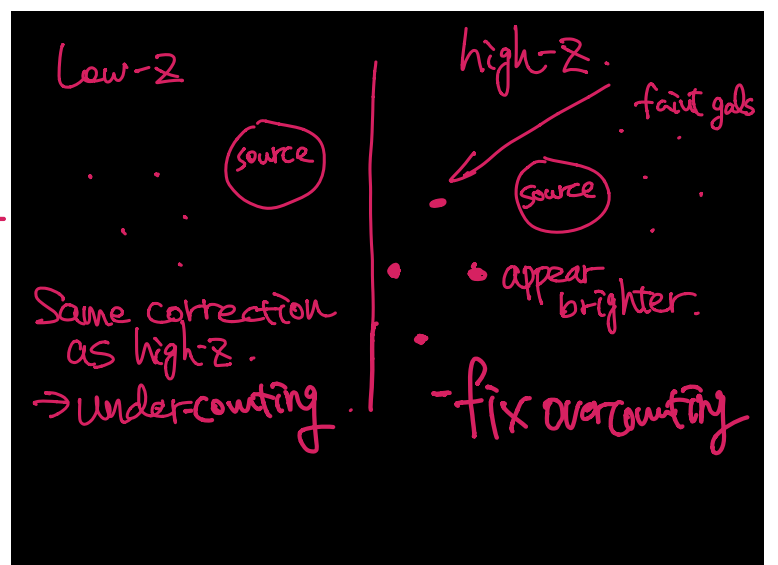 Low-Z
source
Same correction
as high-z.
→ under-counting.
high-z.
faint gals
source
appear
brighter.
- fix overcounting